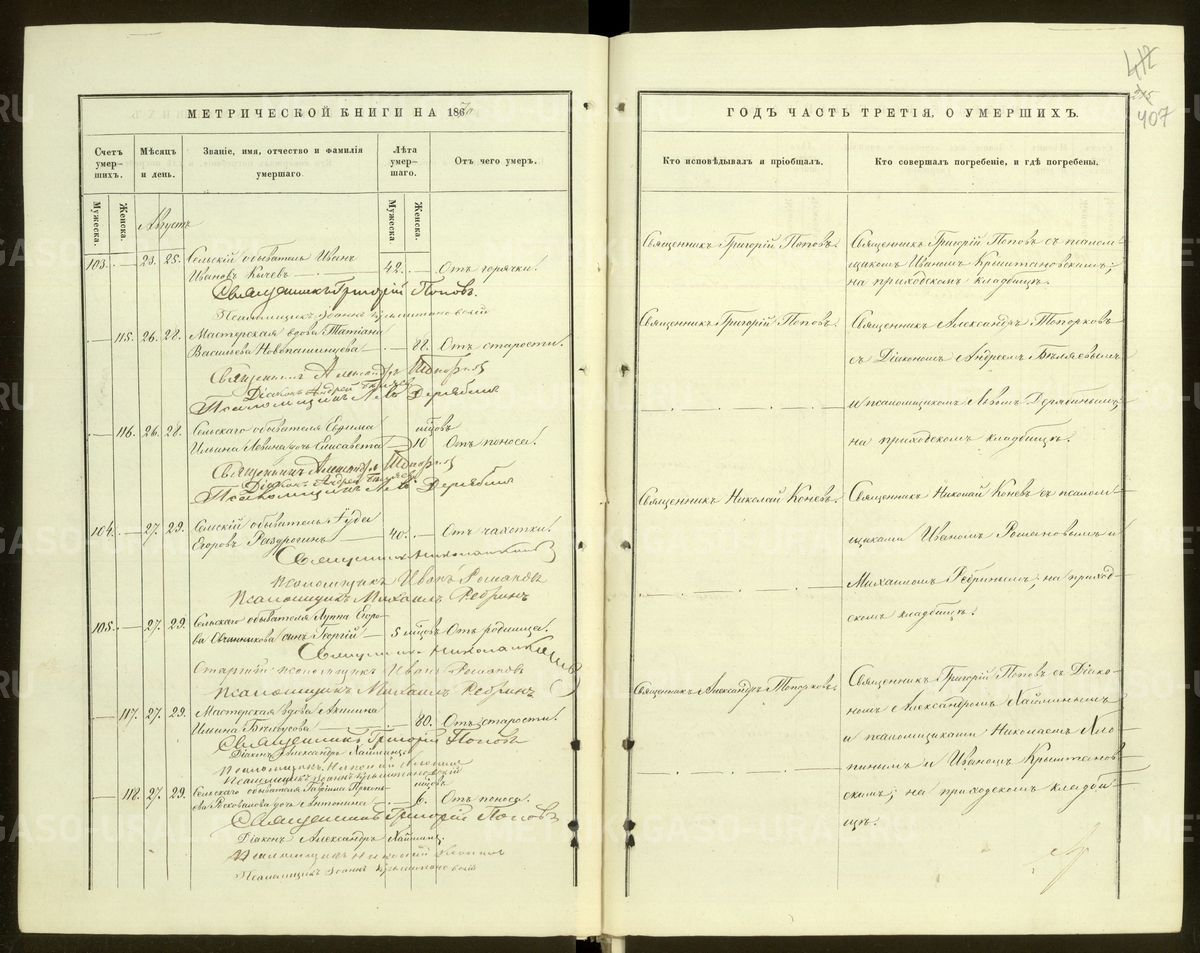 412
315
407
МЕТРИЧЕСКОЙ КНИГИ НА 1870
Счетъ умер-шихъ.
Мѣсяцъ и день.
Званіе, имя, отчество и фамилія умершаго.
Лѣта умер-шаго.
Отъ чего умеръ.
Мужеска.
Женска.
Мужеска
Женска.
Августъ
103. — 23. 25. Сельскій обыватель Иванъ
Ивановъ Кычевъ — 42. — Отъ горячки.
Священникъ Григорій Поповъ.
Псаломщикъ Іоаннъ Крыштановскій
— 115. 26. 28. Мастерская вдова Татіана
Васильева Новопашинцова — 88. Отъ старости.
Священникъ Александръ Топорковъ
Діаконъ Андрей Бѣляевъ
Псаломщикъ Левъ Дерябинъ
— 116. 26. 28. Сельскаго обывателя Евдима мѣсцовъ
Ильина дочь Елисавета — 10 Отъ поноса.
Священникъ Александръ Топорковъ
Діаконъ Андрей Бѣляевъ
Псаломщикъ Левъ Дерябинъ
104. — 27. 29. Сельскій обыватель Іуда
Егоровъ Раздрогинъ — 40. — Отъ чахотки.
Священникъ Николай Коневъ
Псаломщикъ Иванъ Романовъ
Псаломщикъ Михаилъ Ребринъ
105. — 27. 29. Сельскаго обывателя Луппа Егоро-
ва Овчинникова сынъ Георгій — 5 мѣсцовъ Отъ родимца.
Священникъ Николай Коневъ
Старшій псаломщикъ Иванъ Романовъ
Псаломщикъ Михаилъ Ребринъ
— 117. 27. 29. Мастерская вдова Акилина
Ильина Бѣлоусова — 80. Отъ старости.
Священникъ Григорій Поповъ
Діаконъ Александръ Хайминъ
Псаломщикъ Николай Хлопинъ
Псаломщикъ Іоаннъ Крыштановскій
— 118. 27. 29. Сельскаго обывателя Гавріила мѣсцовъ
дочь Антонина — 6. Отъ поноса.
Священникъ Григорій Поповъ
Діаконъ Александръ Хайминъ.
Псаломщикъ Николай Хлопинъ
Псаломщикъ Іоаннъ Крыштановскій
ГОДЪ ЧАСТЬ ТРЕТІЯ, О УМЕРШИХЪ.
Кто исповѣдывалъ и пріобщалъ.
Кто совершалъ погребеніе, и гдѣ погребены.
Священникъ Григорій Поповъ.
Священникъ Григорій Поповъ съ псалом-
щикомъ Иваномъ Крыштановскимъ;
на приходскомъ кладбищѣ.
Священникъ Григорій Поповъ.
Священникъ Александръ Топорковъ
съ Діакономъ Андреемъ Бѣляевымъ
и псаломщикомъ Львомъ Дерябинымъ;
на приходскомъ кладбищѣ.
Священникъ Николай Коневъ.
Священникъ Николай Коневъ съ псалом-
щиками Иваномъ Романовымъ и
Михаиломъ Ребринымъ; на приход-
скомъ кладбищѣ.
Священникъ Александръ Топорковъ.
Священникъ Григорій Поповъ съ Діако-
номъ Александромъ Хайминымъ
и псаломщиками Николаемъ Хло-
пинымъ и Иваномъ Крыштанов-
скимъ; на приходскомъ кладби-
щѣ.